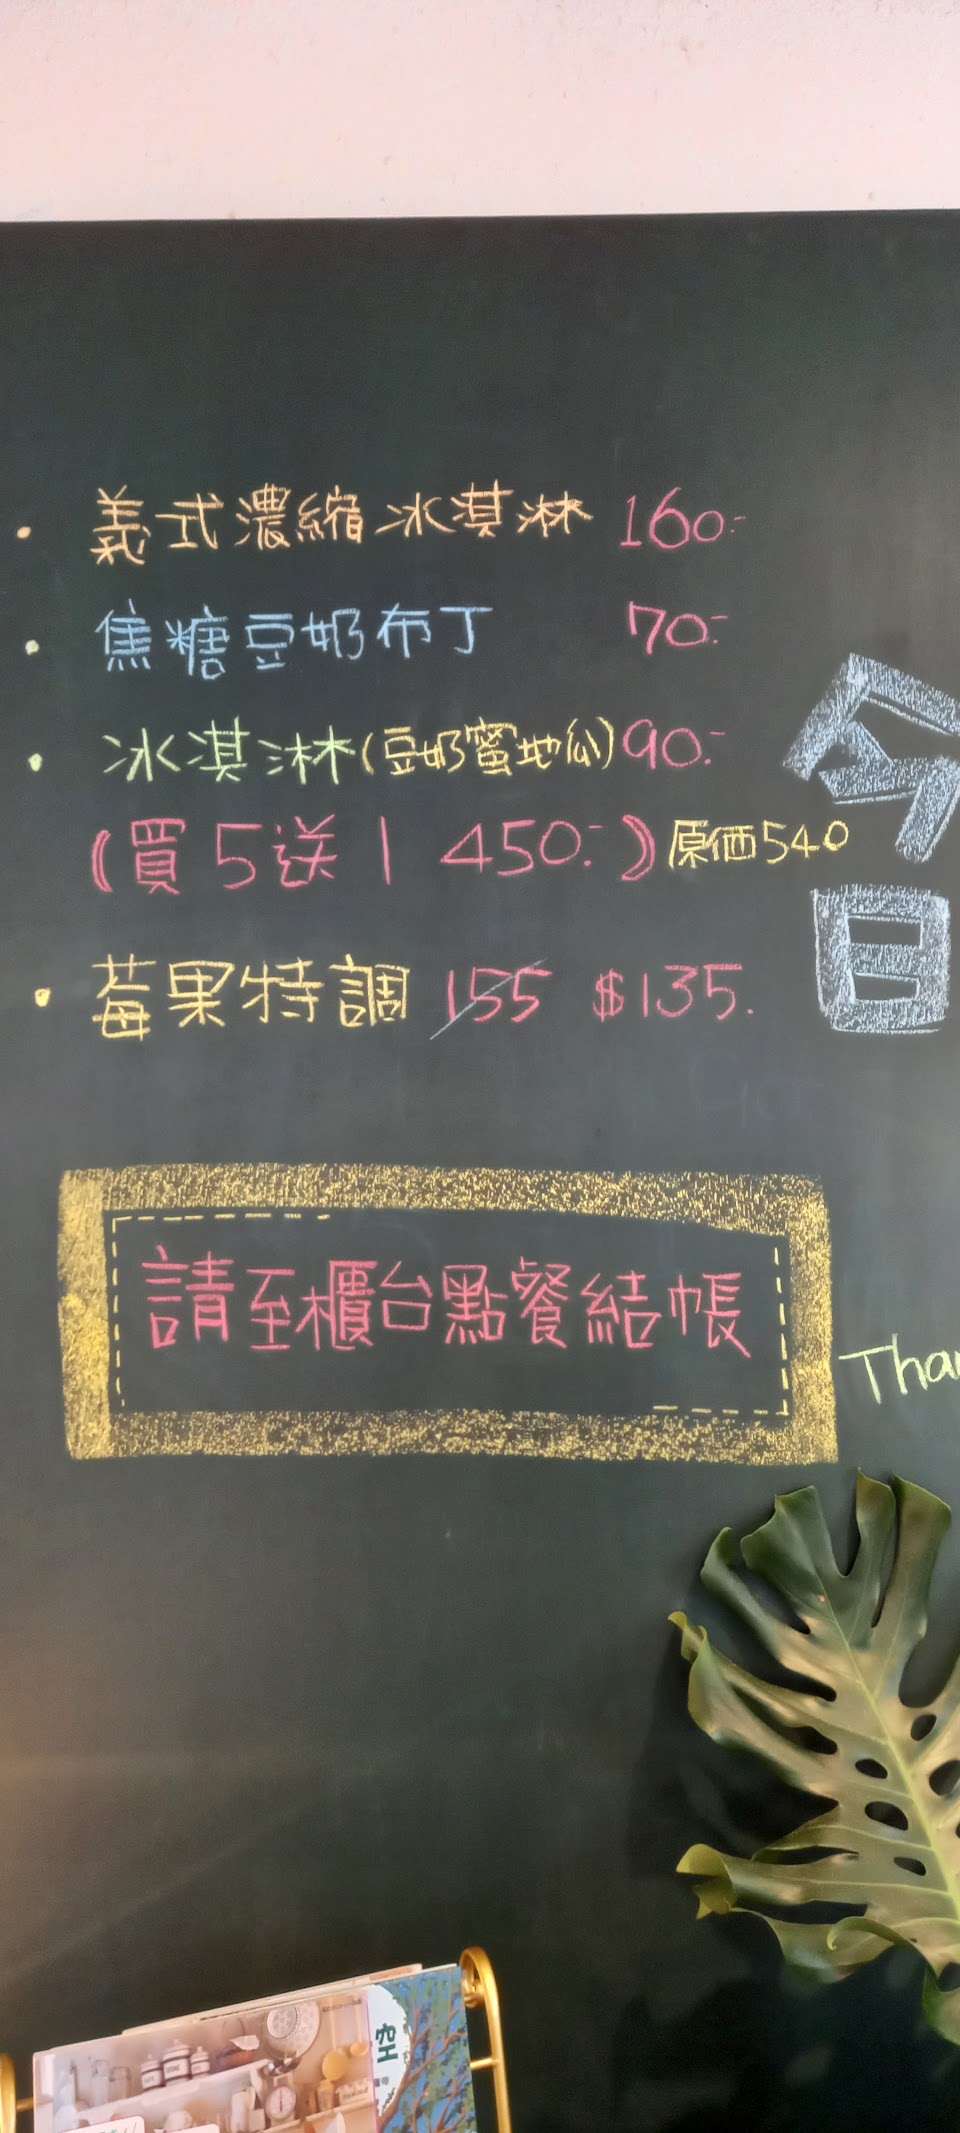 義式濃縮冰淇淋 160.-
焦糖豆奶布丁 70.-
冰淇淋(豆奶蜜地瓜) 90.-
(買5送1 450.-) 原価540
莓果特調 155 $135.
今日
請至櫃台點餐結帳
Than
空